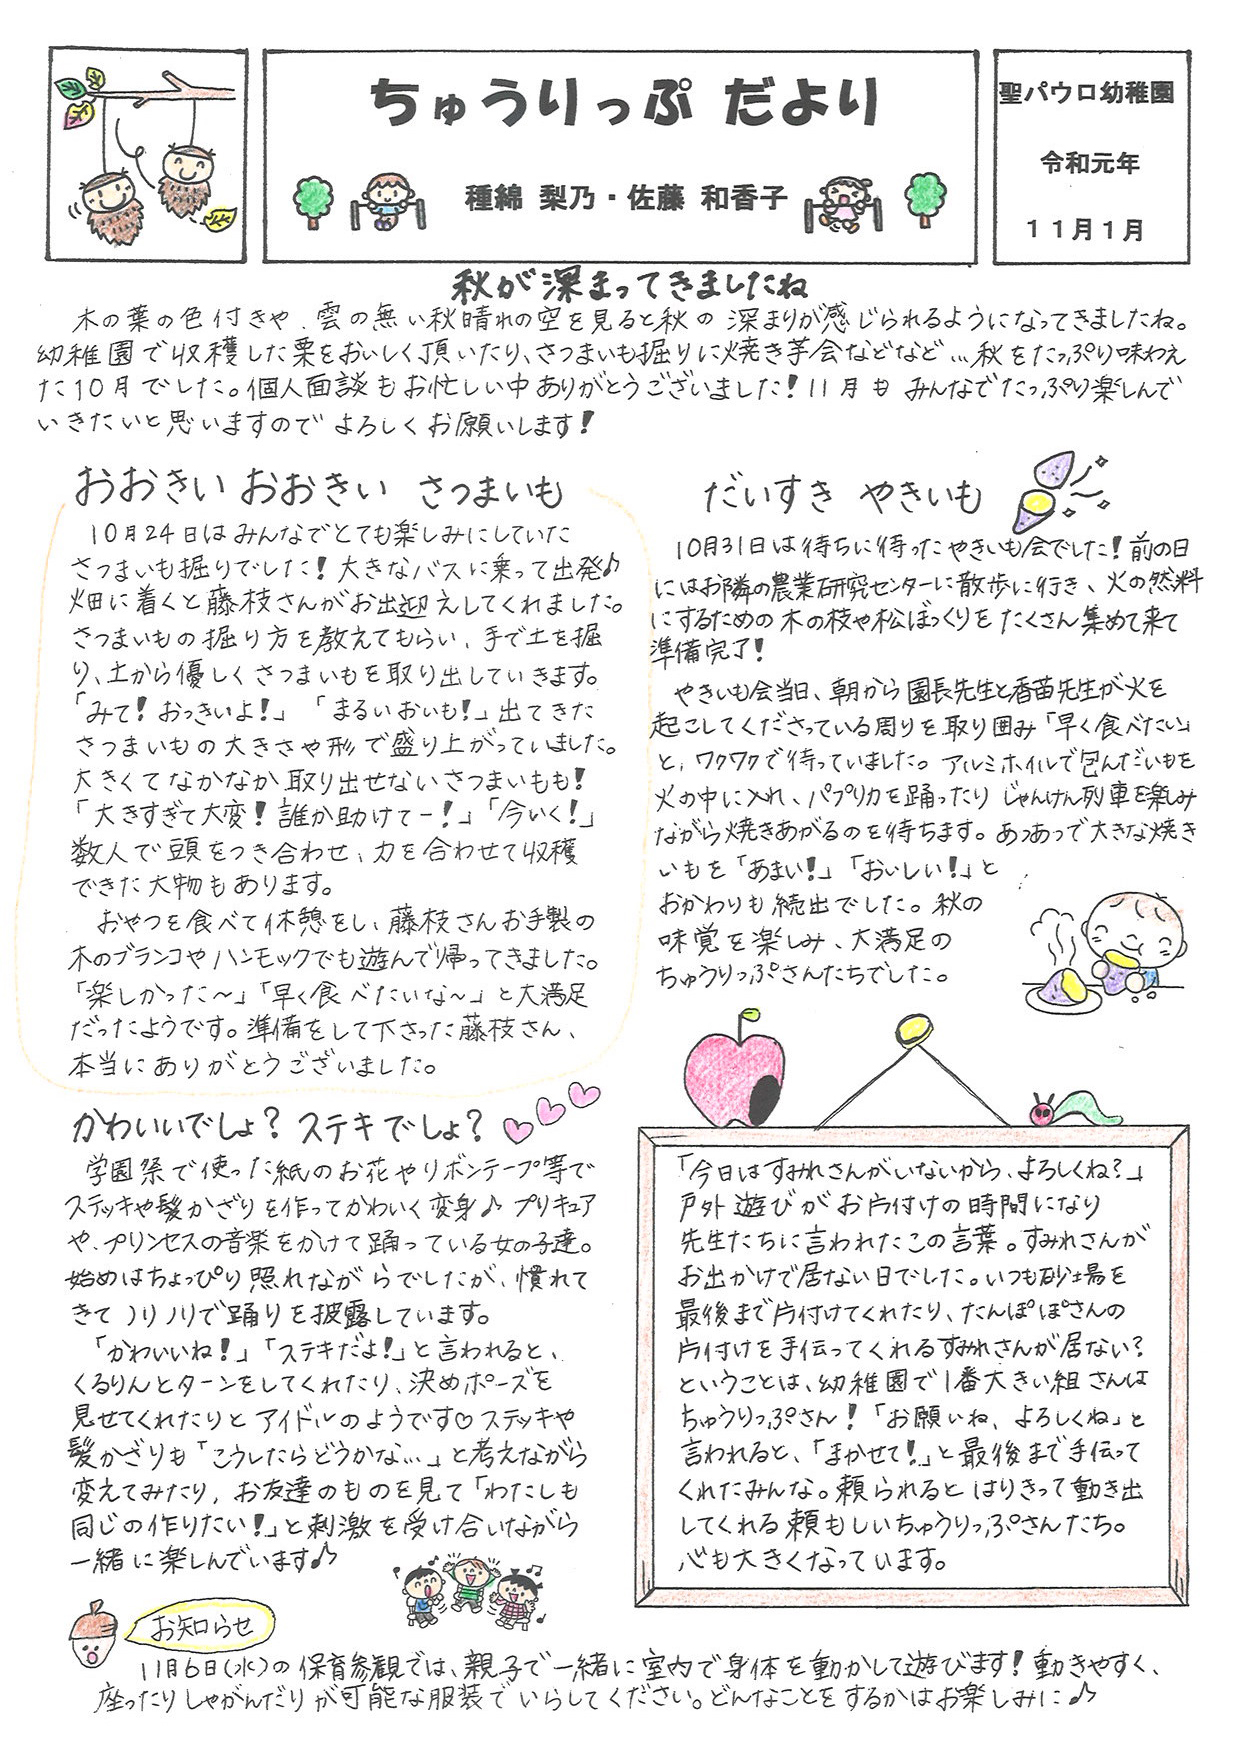 ちゅうりっぷ だより
種綿 梨乃・佐藤 和香子
聖パウロ幼稚園
令和元年
11月1日
秋が深まってきましたね
木の葉の色付きや、雲の無い秋晴れの空を見ると秋の深まりが感じられるようになってきましたね。
幼稚園で収穫した栗をおいしく頂いたり、さつまいも掘りに焼き芋会などなど…秋をたっぷり味わえ
た10月でした。個人面談もお忙しい中ありがとうございました！11月もみんなでたっぷり楽しんで
いきたいと思いますのでよろしくお願いします！
おおきい おおきい さつまいも
10月24日はみんなでとても楽しみにしていた
さつまいも掘りでした！大きなバスに乗って出発♪
畑に着くと藤枝さんがお出迎えしてくれました。
さつまいもの掘り方を教えてもらい、手で土を掘
り、土から優しくさつまいもを取り出していきます。
「みて！おっきいよ！」「まるいおいも！」出てきた
さつまいもの大きさや形で盛り上がっていました。
大きくてなかなか取り出せないさつまいもも！
「大きすぎて大変！誰か助けてー！」「今いく！」
数人で頭をつき合わせ、力を合わせて収穫
できた大物もあります。
おやつを食べて休憩をし、藤枝さんお手製の
木のブランコやハンモックでも遊んで帰ってきました。
「楽しかった～」「早く食べたいな～」と大満足
だったようです。準備をして下さった藤枝さん、
本当にありがとうございました。
だいすき やきいも
10月31日は待ちに待ったやきいも会でした！前の日
にはお隣の農業研究センターに散歩に行き、火の燃料
にするための木の枝や松ぼっくりをたくさん集めて来て
準備完了！
やきいも会当日、朝から園長先生と香苗先生が火を
起こしてくださっている周りを取り囲み「早く食べたい」
と、ワクワクで待っていました。アルミホイルで包んだいもを
火の中に入れ、パプリカを踊ったりじゃんけん列車を楽しみ
ながら焼きあがるのを待ちます。あつあつで大きな焼き
いもを「あまい！」「おいしい！」と
おかわりも続出でした。秋の
味覚を楽しみ、大満足の
ちゅうりっぷさんたちでした。
かわいいでしょ？ステキでしょ？
学園祭で使った紙のお花やリボンテープ等で
ステッキや髪かざりを作ってかわいく変身♪プリキュア
や、プリンセスの音楽をかけて踊っている女の子達。
始めはちょっぴり照れながらでしたが、慣れて
きてノリノリで踊りを披露しています。
「かわいいね！」「ステキだよ！」と言われると、
くるりんとターンをしてくれたり、決めポーズを
見せてくれたりとアイドルのようです♡ステッキや
髪かざりも「こうしたらどうかな…」と考えながら
変えてみたり、お友達のものを見て「わたしも
同じの作りたい！」と刺激を受け合いながら
一緒に楽しんでいます♪
「今日はすみれさんがいないから、よろしくね？」
戸外遊びがお片付けの時間になり
先生たちに言われたこの言葉。すみれさんが
お出かけで居ない日でした。いつも砂場を
最後まで片付けてくれたり、たんぽぽさんの
片付けを手伝ってくれるすみれさんが居ない？
ということは、幼稚園で1番大きい組さんは
ちゅうりっぷさん！「お願いね、よろしくね」と
言われると、「まかせて！」と最後まで手伝って
くれたみんな。頼られるとはりきって動き出
してくれる頼もしいちゅうりっぷさんたち。
心も大きくなっています。
お知らせ
11月6日(水)の保育参観では、親子で一緒に室内で身体を動かして遊びます！動きやすく、
座ったりしゃがんだりが可能な服装でいらしてください。どんなことをするかはお楽しみに♪